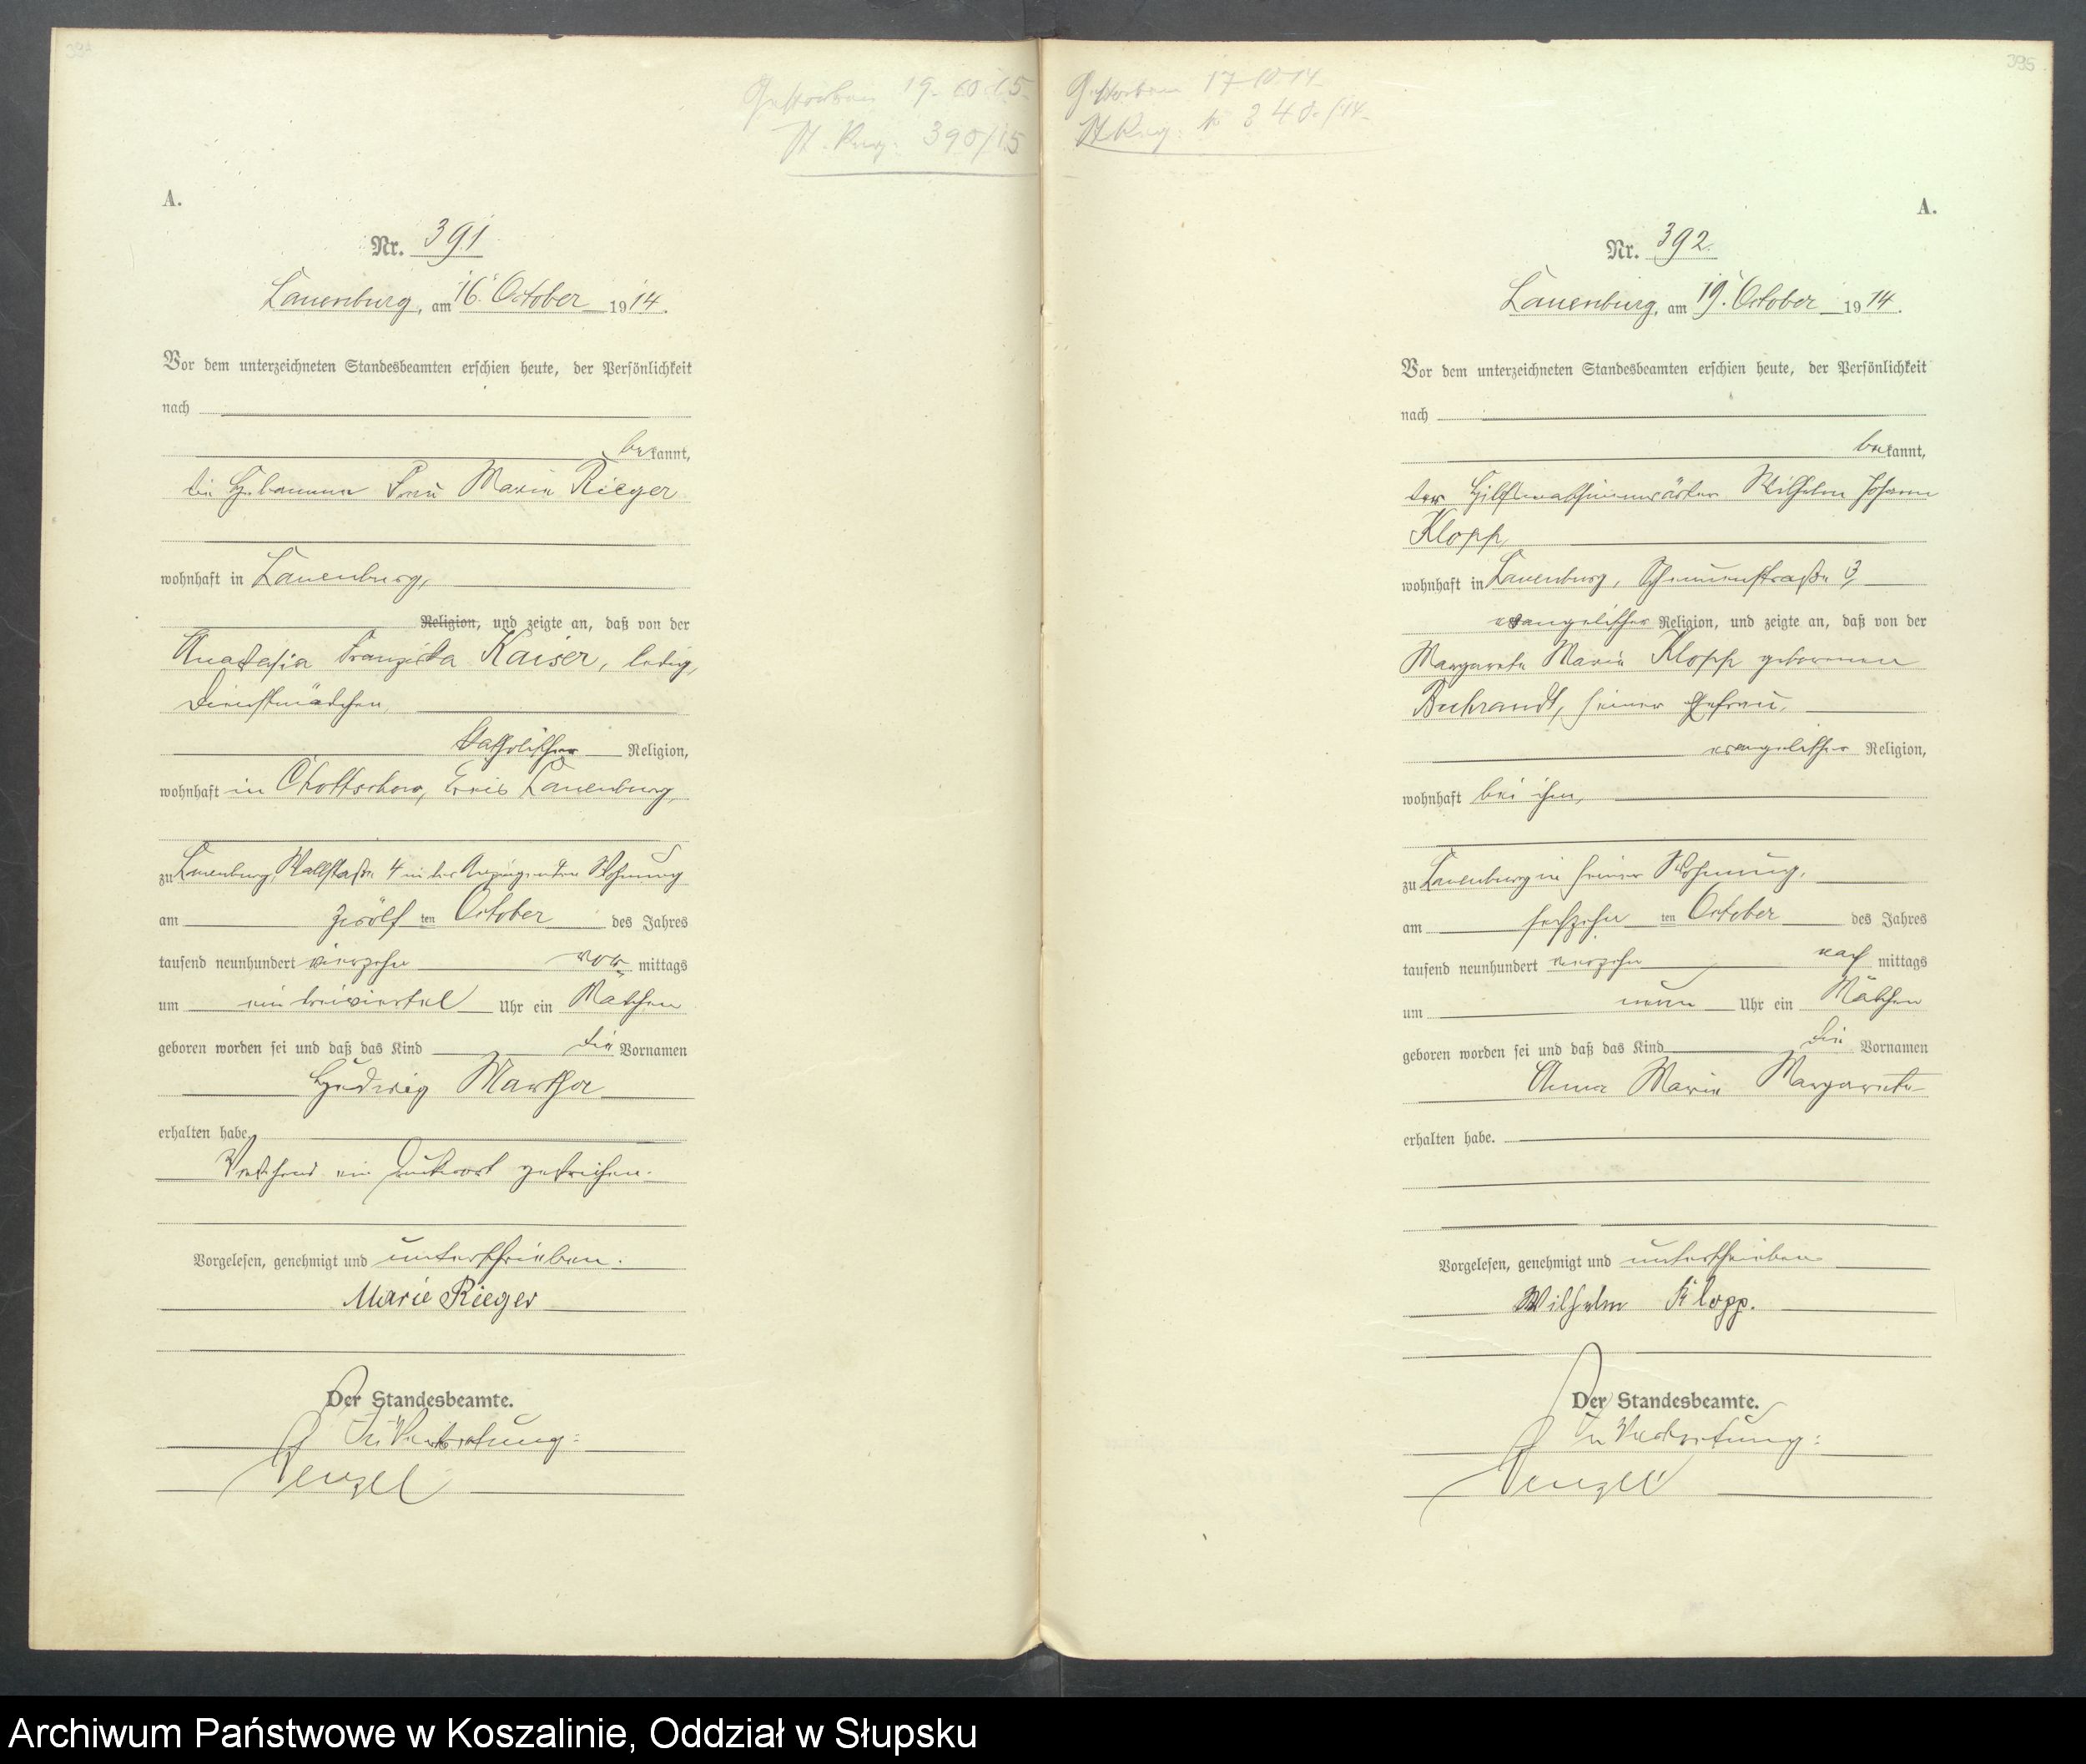 Gestorben 19.10.15
St. Reg. 390/15
A.
Nr. 391
Lauenburg, am 16. October 1914.
Vor dem unterzeichneten Standesbeamten erschien heute, der Persönlichkeit
nach
bekannt,
die Hebamme Frau Marie Rieger
wohnhaft in Lauenburg,
Religion, und zeigte an, daß von der
Anastasia Franziska Kaiser, ledig,
Dienstmädchen,
katholischer Religion,
wohnhaft in Chottschow, Kreis Lauenburg,
zu Lauenburg, Wallstraße 4 in der Anzeigenden Wohnung
am zwölften October des Jahres
tausend neunhundert vierzehn vormittags
um ein dreiviertel Uhr ein Mädchen
geboren worden sei und daß das Kind die Vornamen
Hedwig Martha
erhalten habe.
Vorstehend ein Druckwort gestrichen.
Vorgelesen, genehmigt und unterschrieben.
Marie Rieger
Der Standesbeamte.
In Vertretung:
Wenzel
395
Gestorben 17.10.14
St Reg.
A.
Nr. 392.
Lauenburg, am 19. October 1914.
Vor dem unterzeichneten Standesbeamten erschien heute, der Persönlichkeit
nach
bekannt,
der Hilfsweichenwärter Wilhelm Johann
Klopp,
wohnhaft in Lauenburg, Scheunenstraße 3,
evangelischer Religion, und zeigte an, daß von der
Margarete Marie Klopp geborenen
Buhrandt, seiner Ehefrau,
evangelischer Religion,
wohnhaft bei ihm,
zu Lauenburg in seiner Wohnung,
am sechzehnten October des Jahres
tausend neunhundert vierzehn nachmittags
um neun Uhr ein Mädchen
geboren worden sei und daß das Kind die Vornamen
Anna Marie Margarete
erhalten habe.
Vorgelesen, genehmigt und unterschrieben
Wilhelm Klopp.
Der Standesbeamte.
In Vertretung:
Wenzel
Archiwum Państwowe w Koszalinie, Oddział w Słupsku